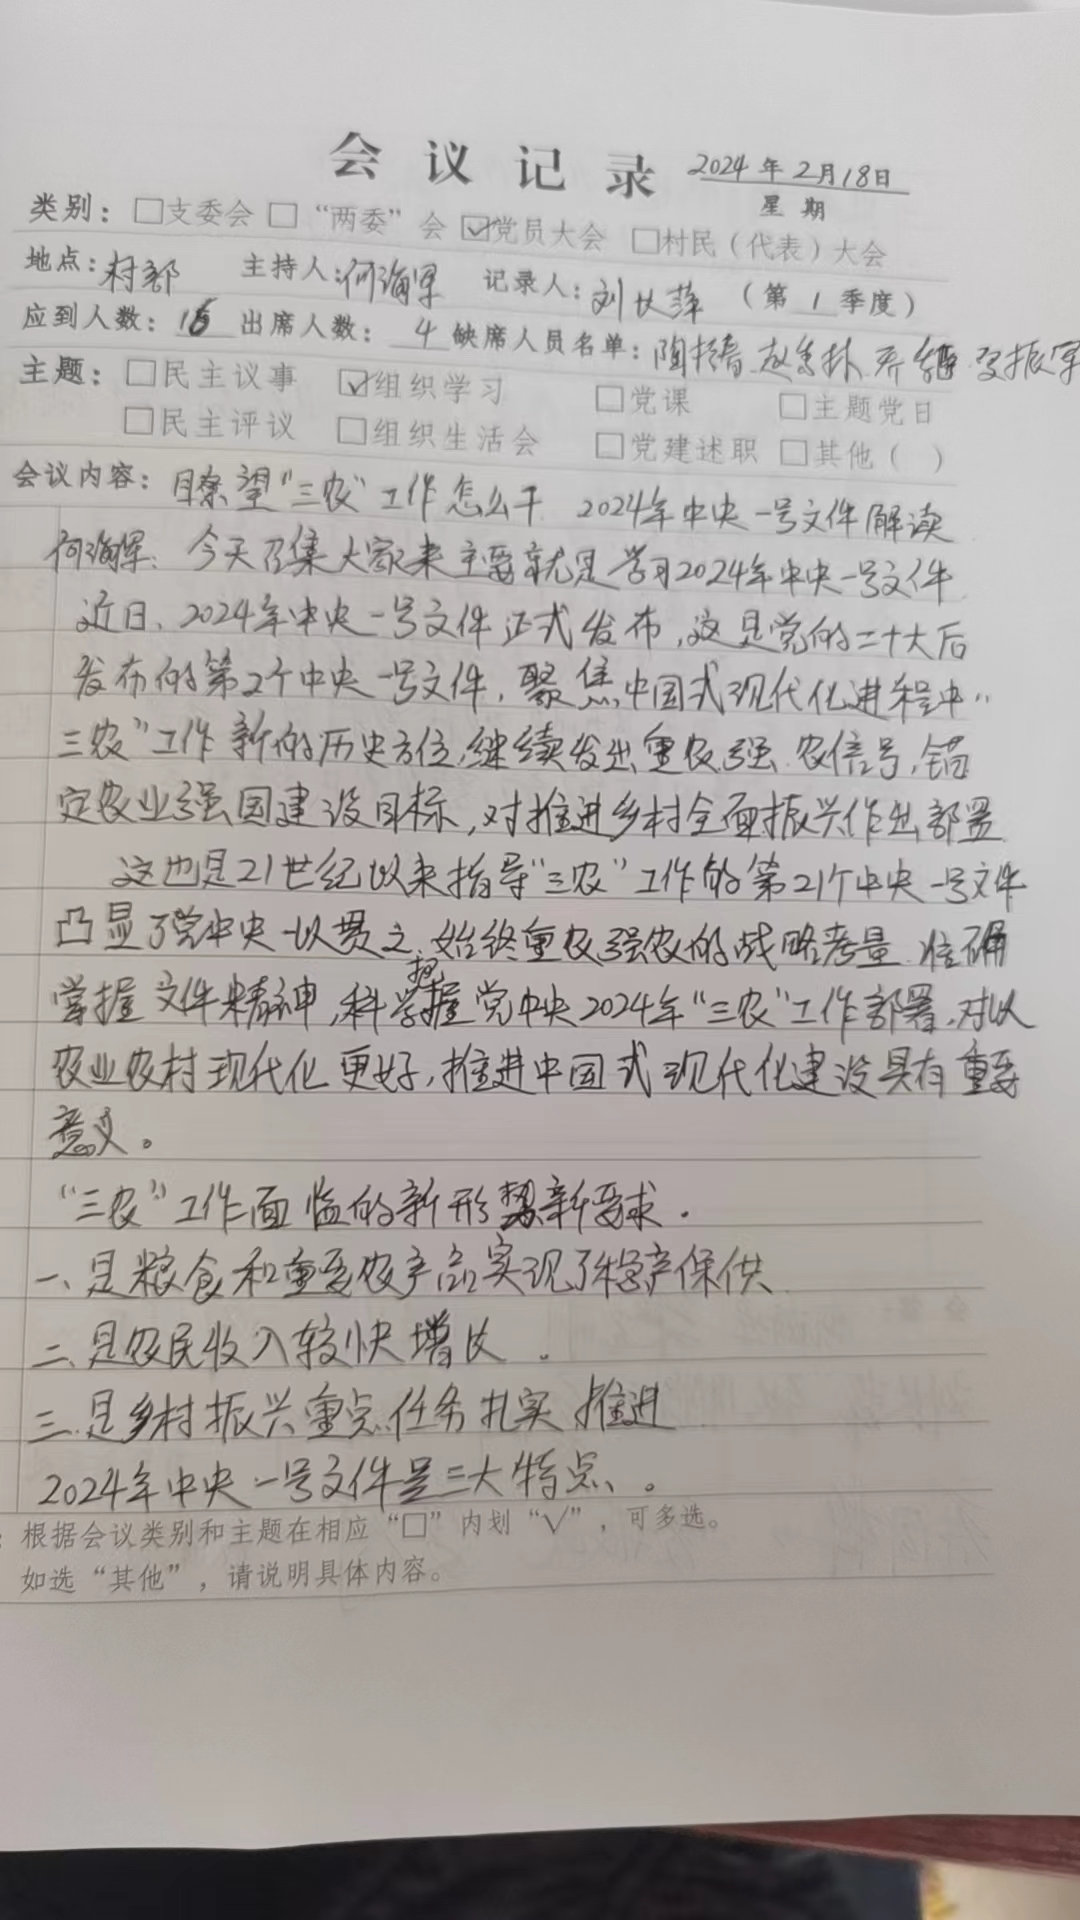 会议记录 2024年2月18日
星期
类别：□支委会 □“两委”会 ☑党员大会 □村民（代表）大会
地点：村部 主持人：何海军 记录人：刘长萍 （第1季度）
应到人数： 出席人数：4 缺席人员名单：陶振春 赵 林 齐 振军
主题：□民主议事 ☑组织学习 □党课 □主题党日
□民主评议 □组织生活会 □党建述职 □其他（ ）
会议内容：瞭望“三农”工作怎么干 2024年中央一号文件解读
何海军：今天召集大家来主要就是学习2024年中央一号文件
近日、2024年中央一号文件正式发布，这是党的二十大后
发布的第2个中央一号文件，聚焦中国式现代化进程中“
三农”工作新的历史方位，继续发出重农强农信号，锚
定农业强国建设目标，对推进乡村全面振兴作出部署
这也是21世纪以来指导“三农”工作的第21个中央一号文件
凸显了党中央一以贯之、始终重农强农的战略考量 准确
掌握文件精神，科学把握党中央2024年“三农”工作部署，对以
农业农村现代化更好，推进中国式现代化建设具有重要
意义。
“三农”工作面临的新形势新要求．
一、是粮食和重要农产品实现了稳产保供
二、是农民收入较快增长．
三、是乡村振兴重点任务扎实推进
2024年中央一号文件呈三大特点、。
：根据会议类别和主题在相应“□”内划“√”，可多选。
如选“其他”，请说明具体内容。